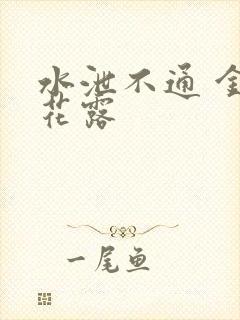 水泄不通 金
花露
一尾鱼